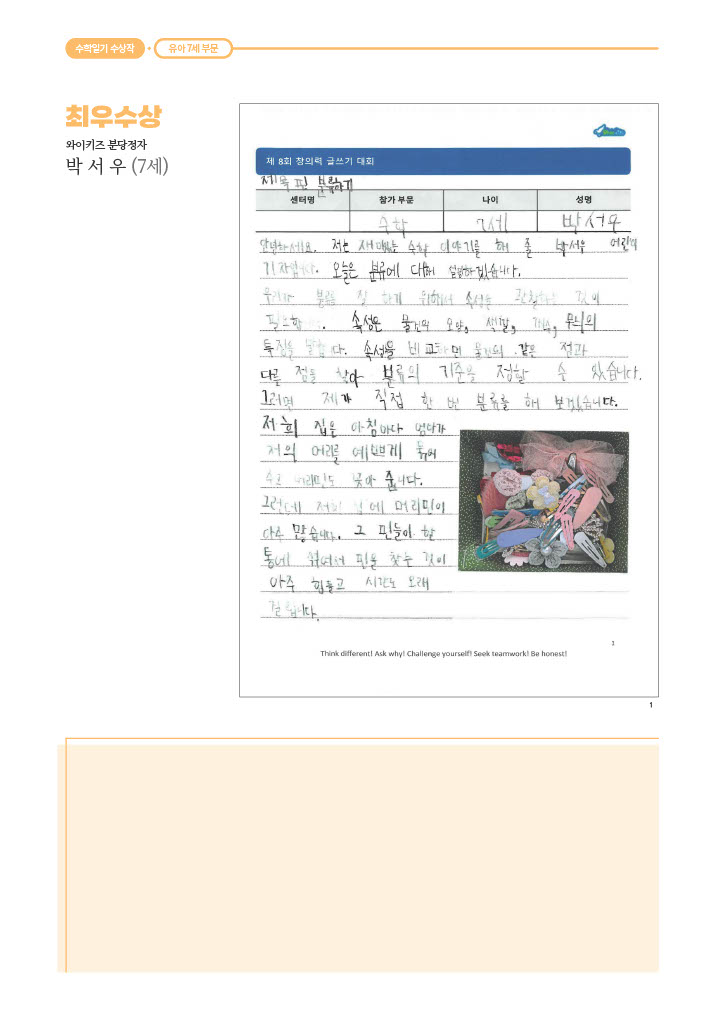 수학일기 수상작
유아 7세 부문
최우수상
와이키즈 분당정자
박 서 우 (7세)
제 8회 창의력 글쓰기 대회
제목 핀 분류하기
센터명 참가 부문 나이 성명
수학 7세 박서우
안녕하세요. 저는 재미있는 수학 이야기를 해 줄 박서우 어린이
기자입니다. 오늘은 분류에 대해 설명하겠습니다.
우리가 분류를 잘 하기 위해서 속성을 관찰하는 것이
필요합니다. 속성은 물건의 모양, 색깔, 개수, 무늬의
특징을 말합니다. 속성을 비교하면 물건의 같은 점과
다른 점을 찾아 분류의 기준을 정할 수 있습니다.
그러면 제가 직접 한 번 분류를 해 보겠습니다.
저희 집은 아침마다 엄마가
저의 머리를 예쁘게 묶어
주고 머리핀도 꽂아 줍니다.
그런데 저희 집에 머리핀이
아주 많습니다. 그 핀들이 한
통에 섞여서 핀을 찾는 것이
아주 힘들고 시간도 오래
걸립니다.
3
Think different! Ask why! Challenge yourself! Seek teamwork! Be honest!
1